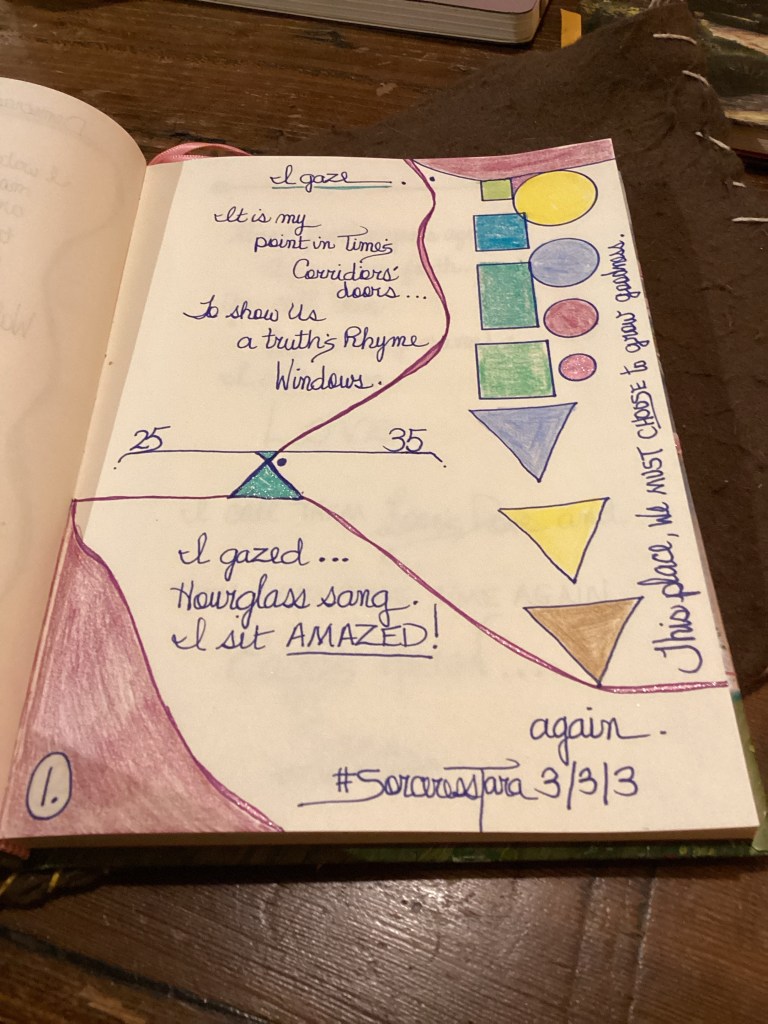 I gaze .
It is my
point in Time's
Corridors'
doors...
To show Us
a truth's Rhyme
Windows.
25 35
I gazed ...
Hourglass sang.
I sit AMAZED!
This place, We MUST CHOOSE to grow goodness.
again.
#SorceressTara 3/3/3
1.